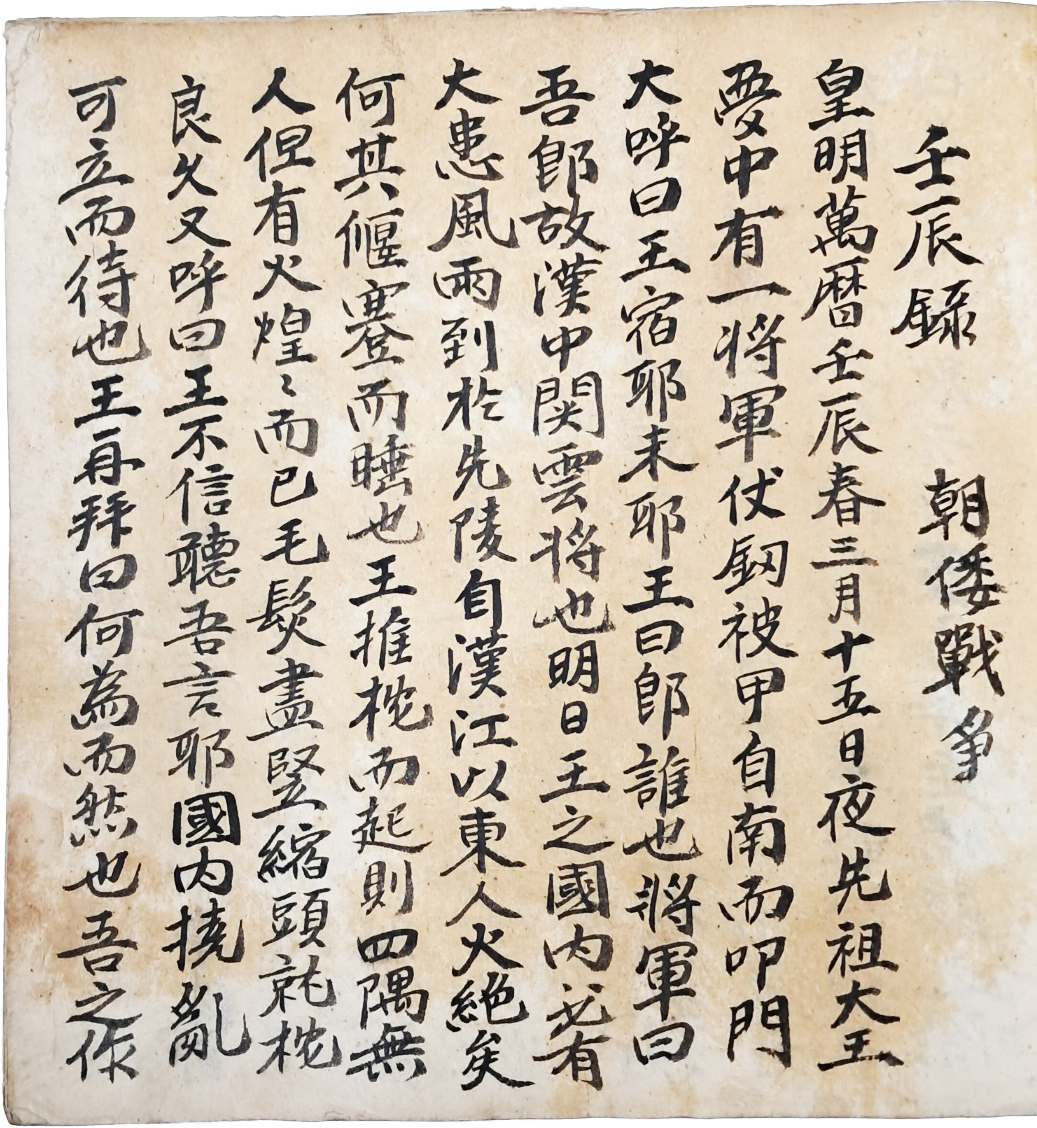 壬辰録 朝倭戰爭
皇明萬曆壬辰春三月十五日夜先祖大王
夢中有一將軍仗釼被甲自南而叩門
大呼曰王宿耶未耶王曰郎誰也將軍曰
吾郎故漢中関雲將也明日王之國内必有
大患風雨到於先陵自漢江以東人火絶矣
何其偃蹇而睡也王推枕而起則四隅無
人但有火煌〻而已毛髮盡竪縮頭就枕
良久又呼曰王不信聽吾言耶國内撓亂
可立而待也王再拜曰何為而然也吾之作